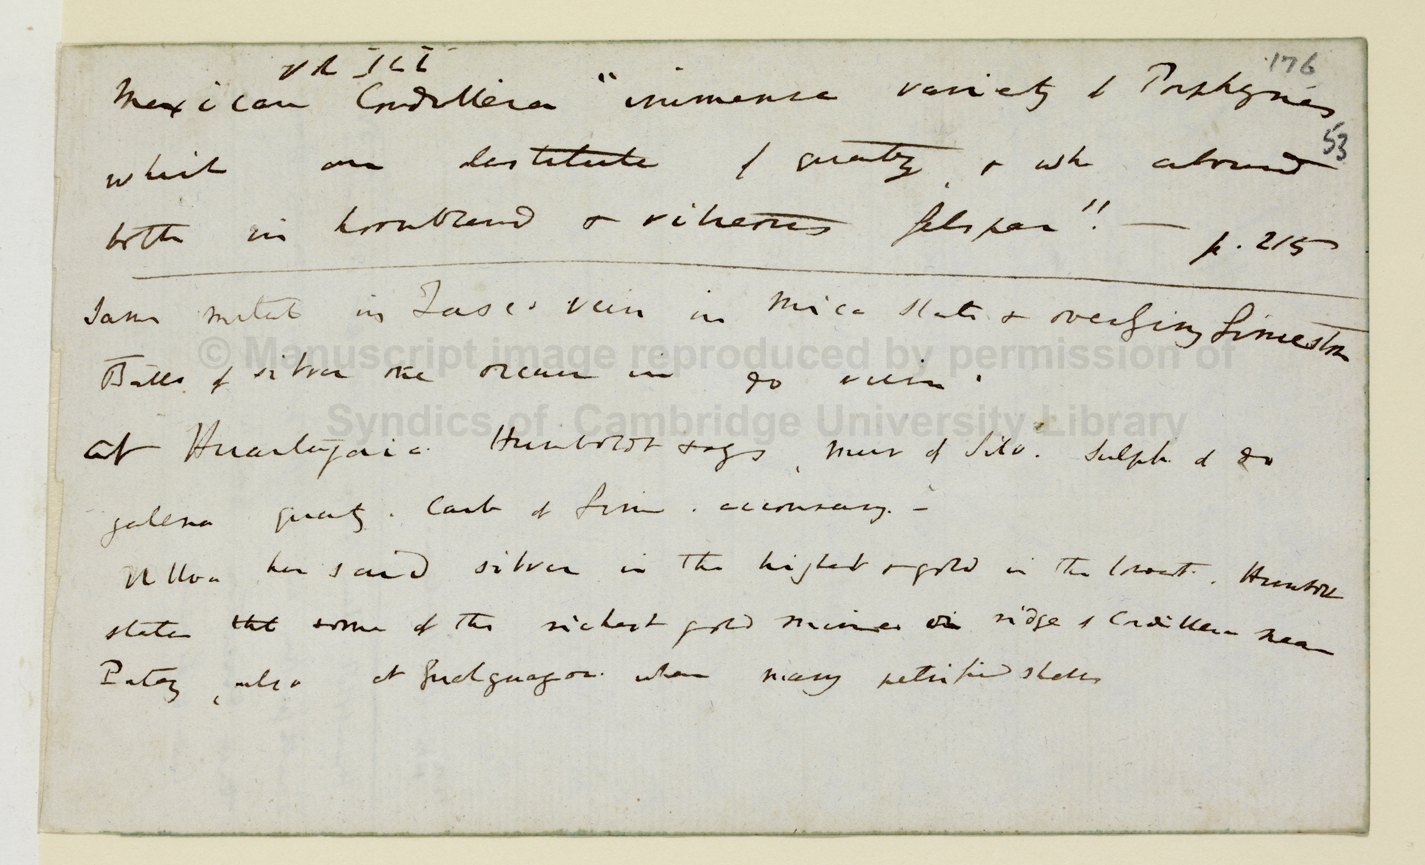 176
Vol III
Mexican Cordillera "immense variety of Porphyries
53
which are destitute of quartz, & wh abound
both in hornblend & vitreous felspar"! — p. 215
Same metal in Tasco vein in Mica slate & overlying Limestone
Balls of silver ore occur in do vein.
At Huantajaia Humboldt says, mur of Silv. Sulph. of do
galena quartz. Carb of Lime. accompany. —
Ulloa has said silver in the highest & gold in the lowest. Humboldt
states that some of the richest gold mines on ridge of Cordillera near
Pataz, also at Gualguayoc. where many petrified shells
© Manuscript image reproduced by permission of
Syndics of Cambridge University Library